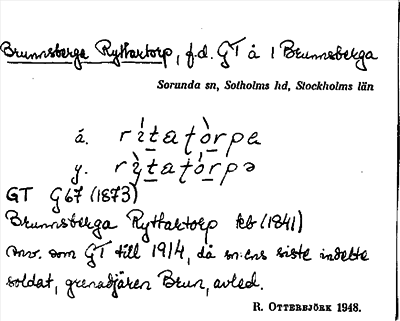 Brunnsberga Ryttartorp, f.d. GT å 1 Brunnsberga
Sorunda sn, Sotholms hd, Stockholms län
á.
y.
GT G67 (1873)
Brunnsberga Ryttartorp kb (1841)
Anv. som GT till 1914, då sn:ens siste indelte
soldat, grenadjären Brun, avled.
R. OTTERBJÖRK 1948.